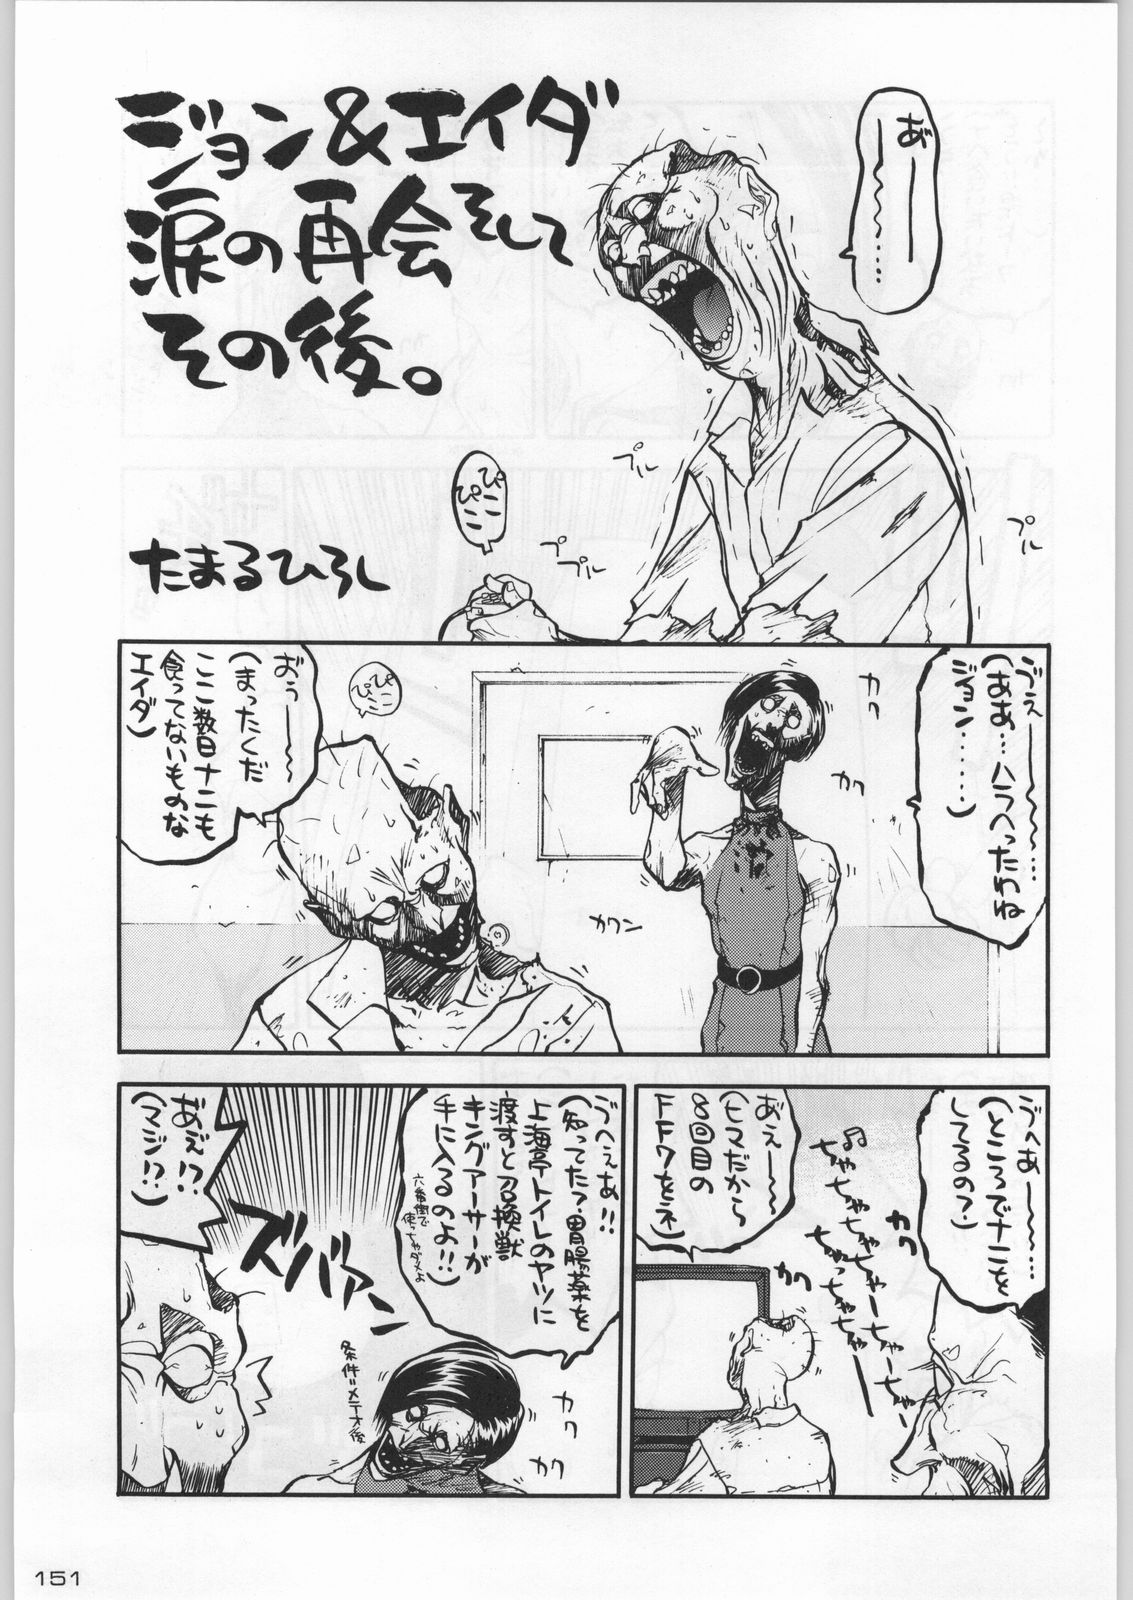 ジョン&エイダ
涙の再会そして
その後。
たまるひろし
あ゛ー〜〜……
ぴこ
ぴこ
プル
ププル
プル
ゔえー〜〜…
(ああ…ハラへったわね
ジョン……)
カク
カク
カクン
ぴこ
ぴこ
おぅー〜
(まったくだ
ここ数日ナニも
食ってないものな
エイダ)
ゔへあー〜〜…
(ところでナニを
してるの?)
カク
カク
♫ちゃちゃちゃちゃーちゃー
ちゃっちゃちゃー
あ゛え〜
(ヒマだから
8回目の
FF7をネ)
ゔへえぁ!!
(知ってた?胃腸薬を
上海亭トイレのヤツに
渡すと召換獣
キングアーサーが
手に入るのよ!!)
六番街で
使っちゃダメよ
条件=メテオ後
カク
カク
ズバァァン
あ゛え!?
(マジ!?)
151